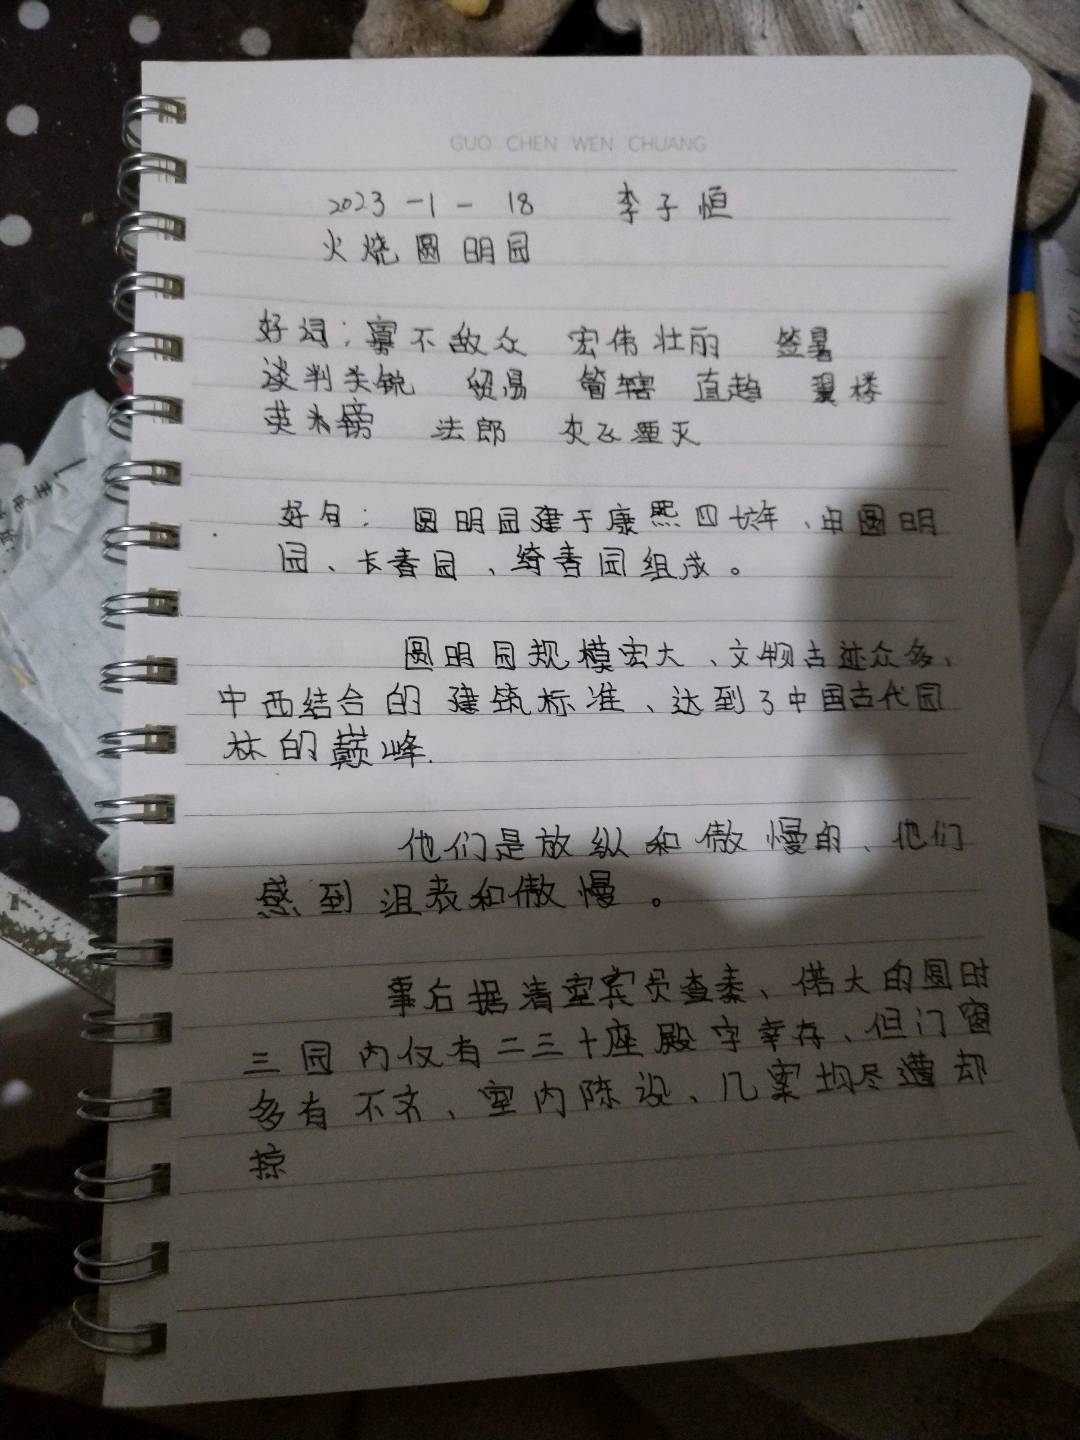 GUO CHEN WEN CHUANG
2023-1-18 李子恒
火烧圆明园
好词：寡不敌众 宏伟壮丽 签署
谈判尖锐 贸易 管辖 直趋 翼楼
英镑 法郎 灰飞湮灭
好句：圆明园建于康熙四十六年、由圆明
园、长春园、绮春园组成。
圆明园规模宏大、文物古迹众多、
中西结合的建筑标准、达到了中国古代园
林的巅峰.
他们是放纵和傲慢的、他们
感到沮丧和傲慢。
事后据清室官员查奏、偌大的圆时
三园内仅有二三十座殿宇幸存、但门窗
多有不齐、室内陈设、几案均尽遭却
掠